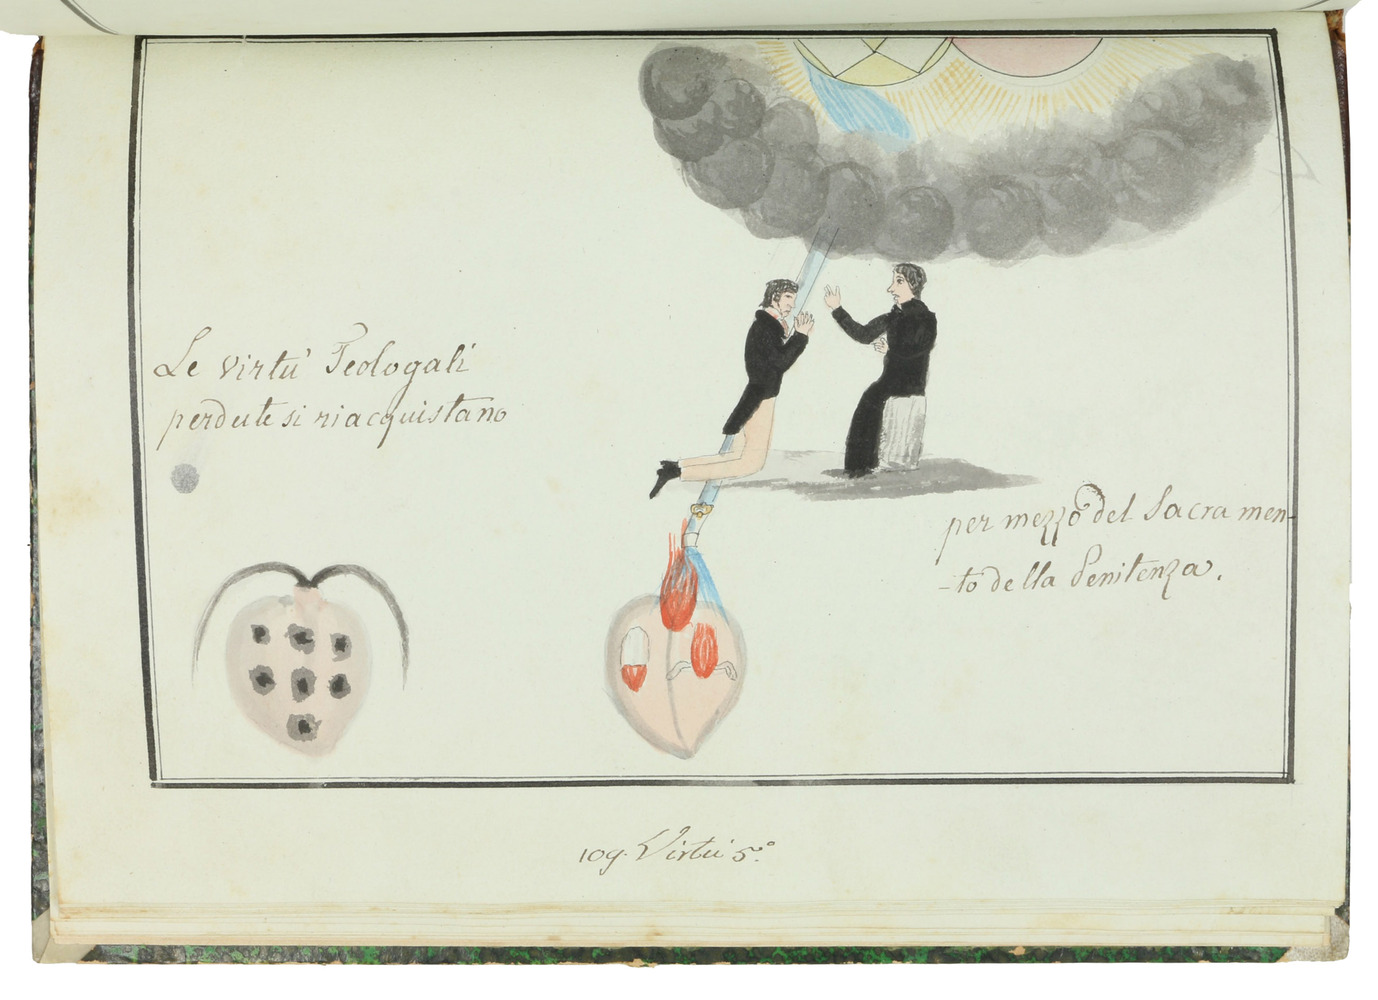 Le virtù Teologali
perdute si riacquistano
per mezzo del Sacramen-
-to della Penitenza.
109. Virtù 5.°